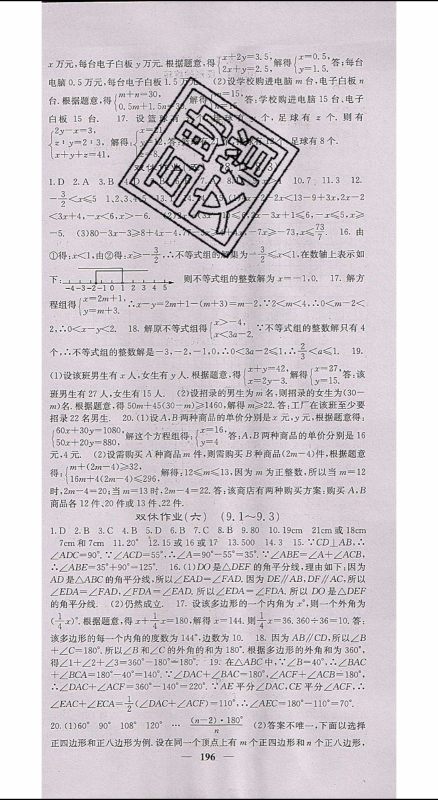 x万元,每台电子白板y万元.根据题意,得{x+2y=3.5, 2x+y=2.5, 解得{x=0.5, y=1.5. 答:每台
电脑0.5万元,每台电子白板1.5万元. (2)设学校购进电脑m台,电子白板n
台.根据题意,得{m+n=30, 0.5m+1.5n= 解得 答:学校购进电脑15台、电子
白板15台. 17. 设篮球有 个, 球有 个,足球有z个.则有
{2y-x=3, z:y=2:3, x+y+z=41, 解得 x=21 足球有8个.
双休
1.D 2.A 3.B 4. 10.7 11.3 12.
-3/2<x≤5 1,2,3,4,5 13. 2x-2<x-13-9+3x,2x-2
<3x+4,-x<6,x>-6. 6,2x-3x+1≤6,-x≤5,x≥
-5. (3)80-3x-3≥8+4x-4,77-3x≥ -7x≥-73,x≤73/7. 16. 由
①得:x<1,由②得:x≥-3/2,∴不等式组的解集为-3/2≤x<1,在数轴上表示如
下: -4 -3 -2 -1 0 1 2 3 4 5 则不等式组的整数解为x=-1,0. 17. 解方
程组得{x=2m+1, y=m+3. ∴x-y=2m+1-(m+3)=m-2,∵2<m<4,∴0<m-2<
2,∴0<x-y<2. 18. 解原不等式组得{x>-4, x<3a-2. ∵不等式组的整数解只有4
个,∴不等式组的整数解是-3,-2,-1,0,∴0<3a-2≤1,∴2/3<a≤1. 19.
(1)设该班男生有x人,女生有y人.根据题意,得{x+y=42, x=2y-3. 解得{x=27, y=15. 答:该
班男生有27人,女生有15人. (2)设招录的男生为m名,则招录的女生为(30-
m)名.根据题意,得50m+45(30-m)≥1460,解得m≥22.答:工厂在该班至少要
招录22名男生. 20.(1)设A、B两种商品的单价分别是x元、y元,根据题意得:
{60x+30y=1080, 50x+20y=880, 解这个方程组得:{x=16, y=4 答:A、B两种商品的单价分别是16
元、4元. (2)设需购买A种商品m件,则需购买B种商品(2m-4)件,根据题意
得:{m+(2m-4)≥32, 16m+4(2m-4)≤296, 解得:12≤m≤13,因为m为正整数,所以当m=12
时,2m-4=20;当m=13时,2m-4=22.答:该商店有两种购买方案:购买A、B
商品各12件、20件或13件、22件.
双休作业(六) (9.1~9.3)
1.D 2.B 3.C 4.B 5.D 6.B 7.C 8.B 9.80 10.19cm 21cm或18cm
7cm和7cm 11.20° 12.15或16或17 13.500 14.3 15.∵CD⊥AB,∴
∠ADC=90°.∵∠ACD=55°,∴∠A=90°-55°=35°.∵∠ABE=∠A+∠ACB,
∴∠ABE=35°+90°=125°. 16.(1)DO是△DEF的角平分线,理由如下:因为
AD是△ABC的角平分线,所以∠EAD=∠FAD.因为DE∥AB,DF∥AC,所以
∠EDA=∠FAD,∠FDA=∠EAD.所以∠EDA=∠FDA.所以DO是△DEF
的角平分线. (2)仍然成立. 17. 设该多边形的一个内角为x°,则一个外角为
(1/4 x)°.根据题意,得x+1/4x=180,解得x=144.则1/4x=36.360÷36=10.答:
该多边形的每一个内角的度数为144°,边数为10. 18. 因为AB∥CD,所以∠B
+∠C=180°.所以∠B和∠C的外角的和为180°.根据多边形的外角和为360°,
得∠1+∠2+∠3=360°-180°=180°. 19. 在△ABC中,∵∠B=40°,∴∠BAC
+∠BCA=180°-40°=140°.∵∠DAC+∠BAC=180°,∠ACF+∠ACB=180°.
∴∠DAC+∠ACF=360°-140°=220°.∵AE平分∠DAC,CE平分∠ACF,∴
∠EAC+∠ECA=1/2(∠DAC+∠ACF)=110°,∴∠AEC=180°-110°=70°.
20.(1)60° 90° 108° 120° … (n-2)·180°/n (2)答案不唯一,下面以选择
正四边形和正八边形为例.设在同一个顶点上有m个正四边形和n个正八边形,
— 196 —